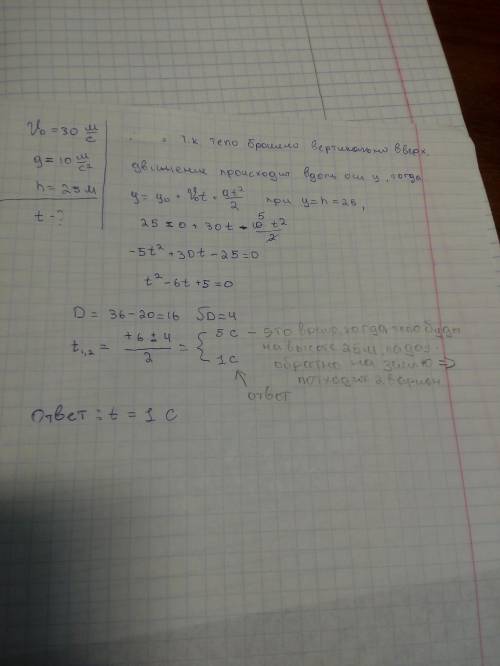 V₀ = 30 м/с
g = 10 м/с²
h = 25 м
t - ?
т.к тело брошено вертикально вверх,
движение происходит вдоль оси y, тогда
y = y₀ + V₀t + at²/2 при y = h = 25,
25 = 0 + 30t - 10 5 t²/2
-5t² + 30t - 25 = 0
t² - 6t + 5 = 0
D = 36 - 20 = 16 √D = 4
t₁,₂ = +6 ± 4 / 2 = { 5 с - это время, когда тело буде
1 с на высоте 25 м, падая
обратно на землю =>
подходит 2 вариан
ответ
Ответ: t = 1 с